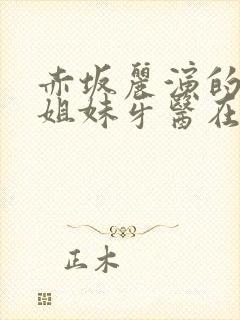 赤坂麗演的
姐妹牙醫在
正木